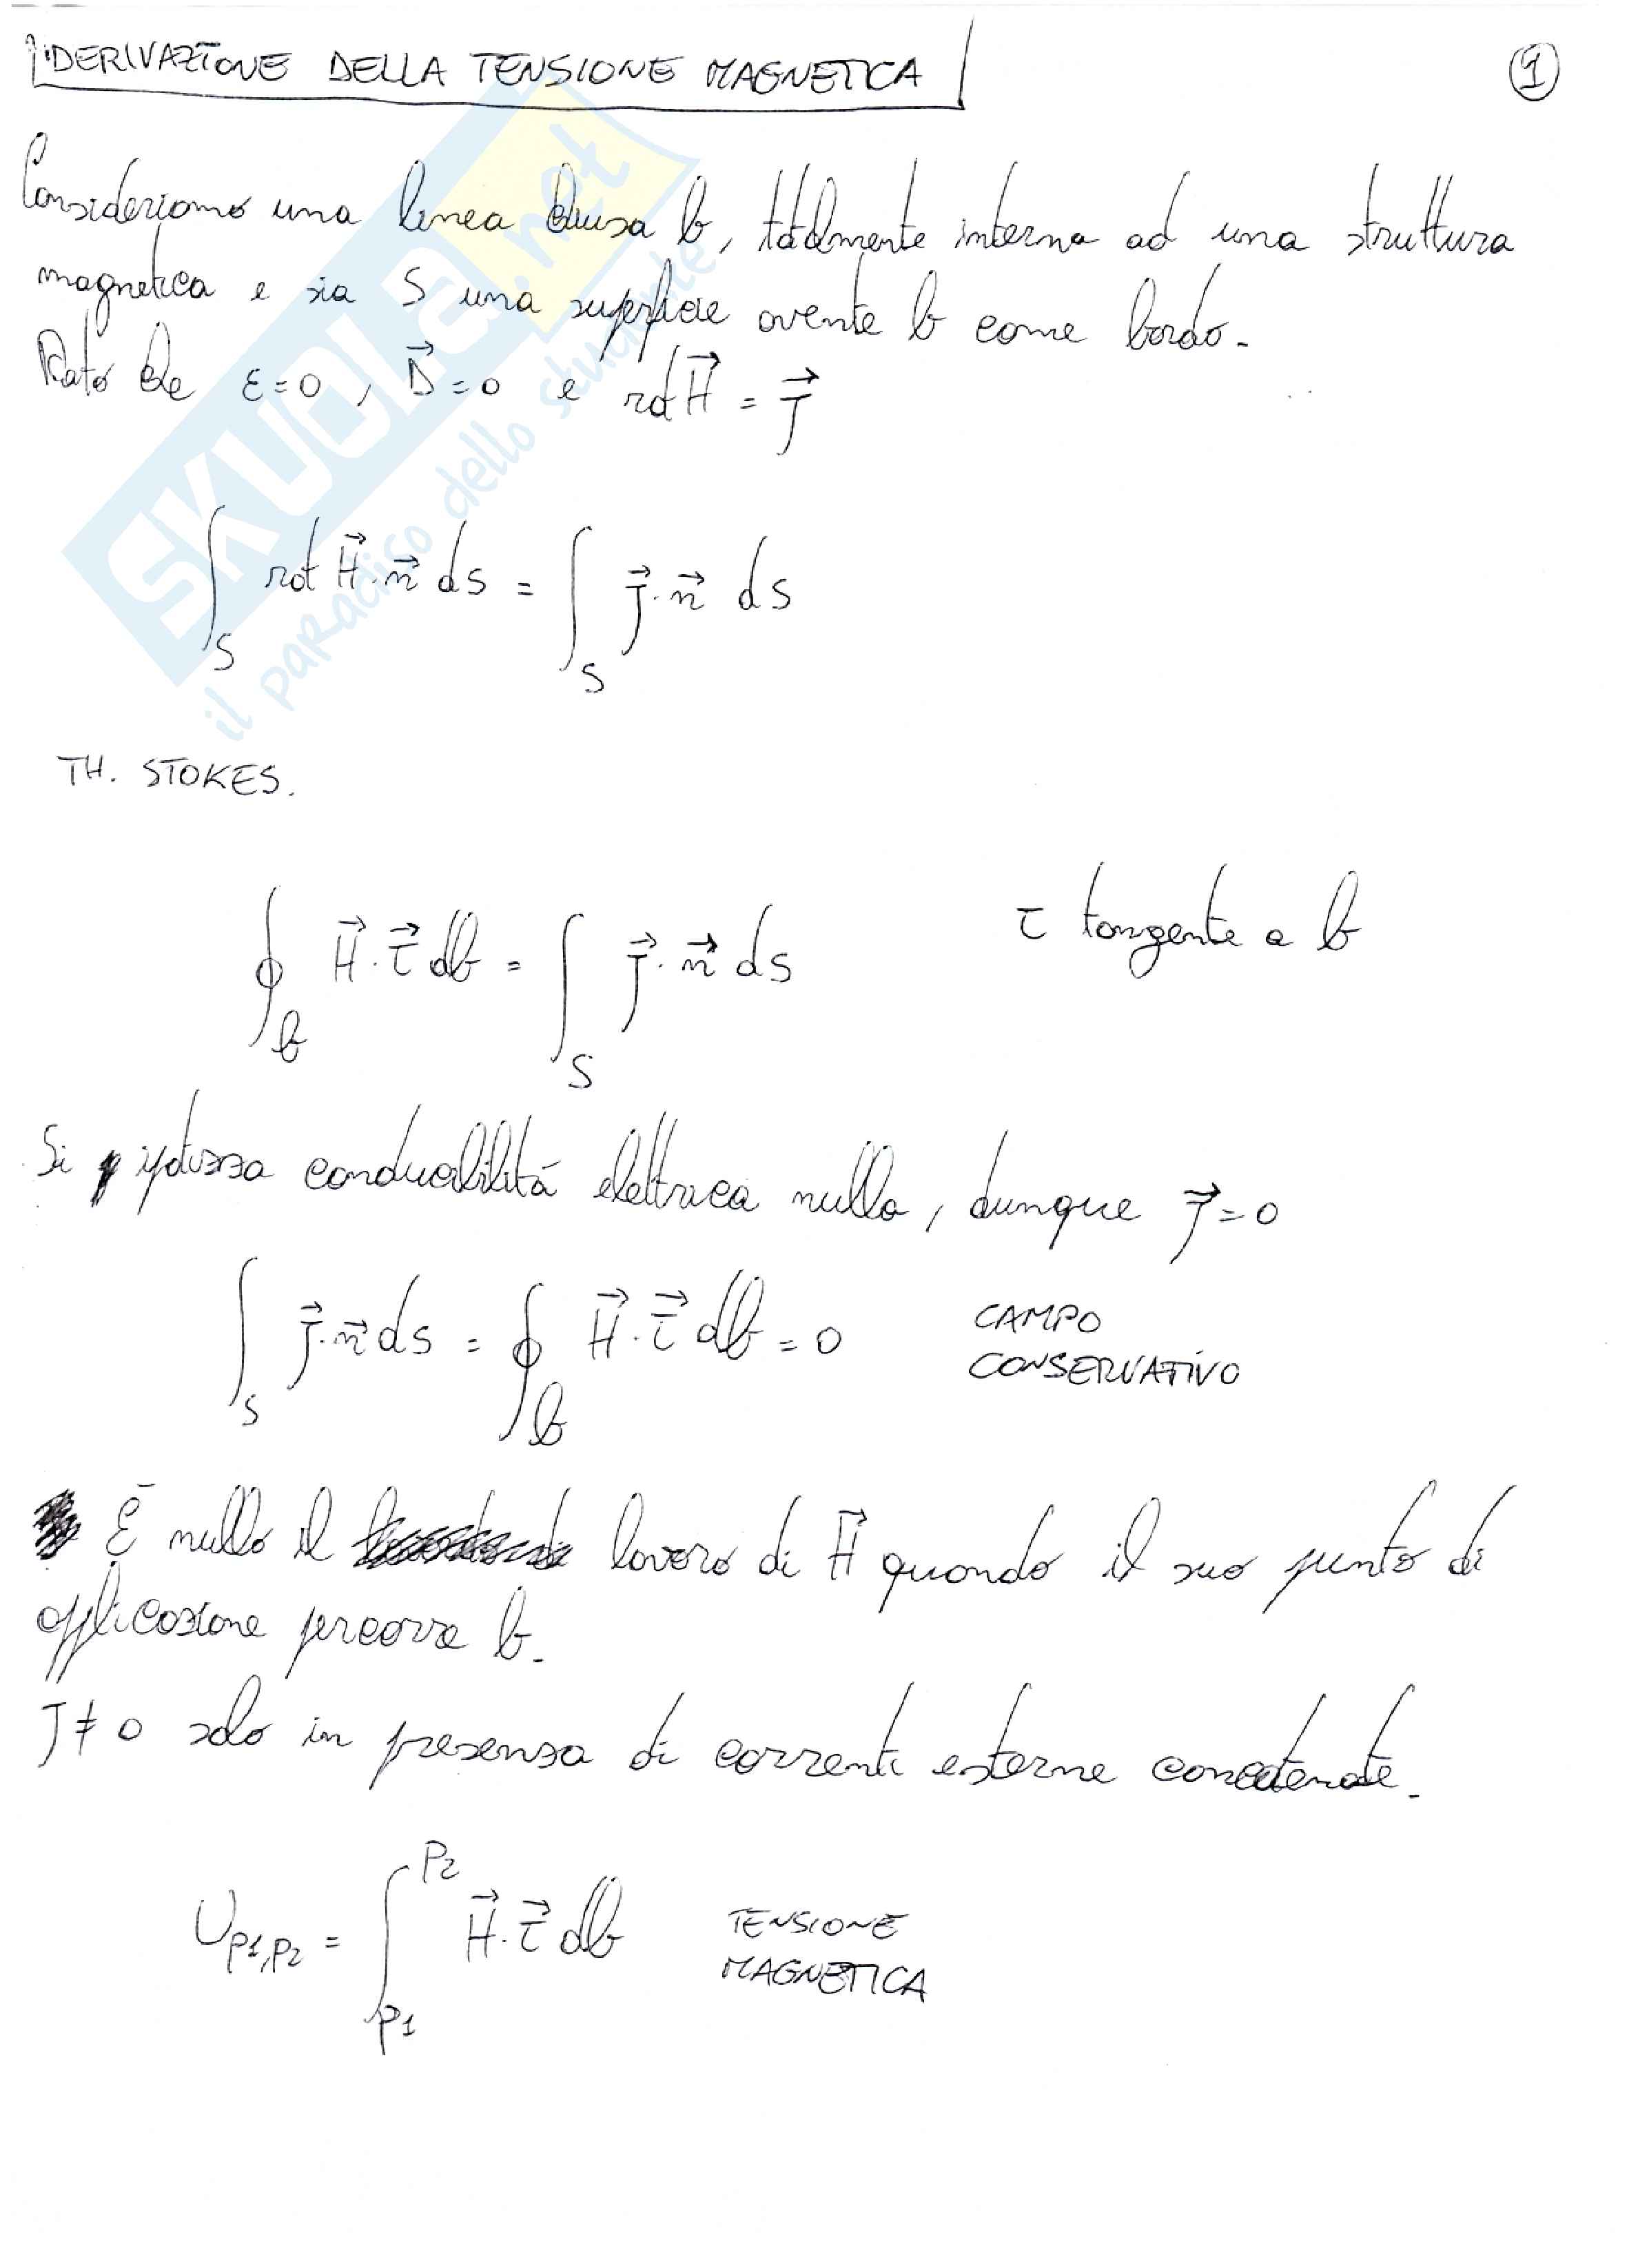 DERIVAZIONE DELLA TENSIONE MAGNETICA
1
Consideriamo una linea chiusa b, totalmente interna ad una struttura
magnetica e sia S una superficie avente b come bordo.
Dato che ε=0, D⃗=0 e rot H⃗ = J⃗
∫_S rot H⃗·n⃗ ds = ∫_S J⃗·n⃗ ds
TH. STOKES.
∮_b H⃗·τ⃗ db = ∫_S J⃗·n⃗ ds   τ tangente a b
Si ipotizza conducibilità elettrica nulla, dunque J⃗=0
∫_S J⃗·n⃗ ds = ∮_b H⃗·τ⃗ db = 0   CAMPO
CONSERVATIVO
È nullo il lavoro di H⃗ quando il suo punto di
applicazione percorre b.
J≠0 solo in presenza di correnti esterne concatenate.
U_P1,P2 = ∫_P1^P2 H⃗·τ⃗ db   TENSIONE
MAGNETICA
SKUOLA.net
il paradiso dello studente